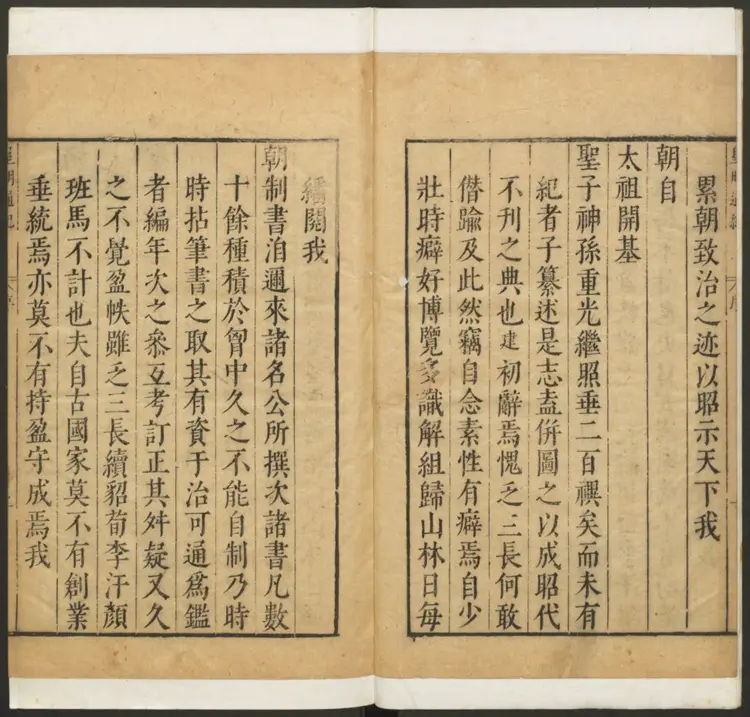 累朝致治之迹以昭示天下我
朝自
太祖開基
聖子神孫重光繼照垂二百禩矣而未有
紀者子纂述是志盍併圖之以成昭代
不刊之典也建初辭焉愧乏三長何敢
僭踰及此然竊自念素性有癖焉自少
壯時癖好博覽多識解組歸山林日每
繙閱我
朝制書洎邇來諸名公所撰次諸書凡數
十餘種積於胷中久之不能自制乃時
時拈筆書之取其有資于治可通爲鑑
者編年次之叅互考訂正其舛疑又久
之不覺盈帙雖乏三長續貂荀李汗顏
班馬不計也夫自古國家莫不有創業
垂統焉亦莫不有持盈守成焉我
皇明通紀
序